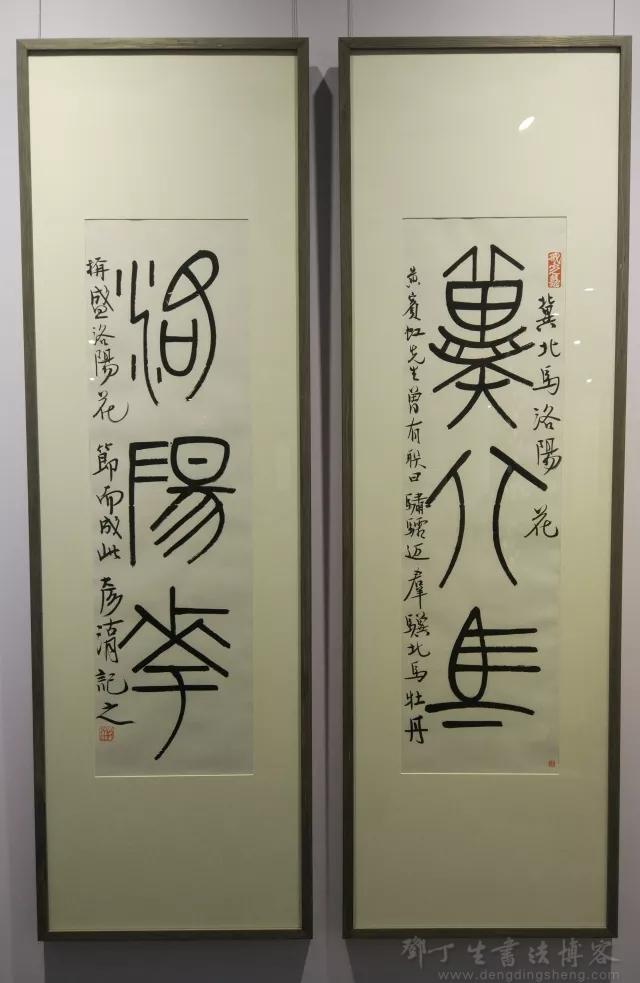 冀北馬洛陽花
冀北馬
黄賓虹先生曾有联曰驌驦迈羣驥北馬牡丹
洛陽華
稱盛洛陽花節而成此彦清記之
鄧丁生書法博客
www.dengdingsheng.com